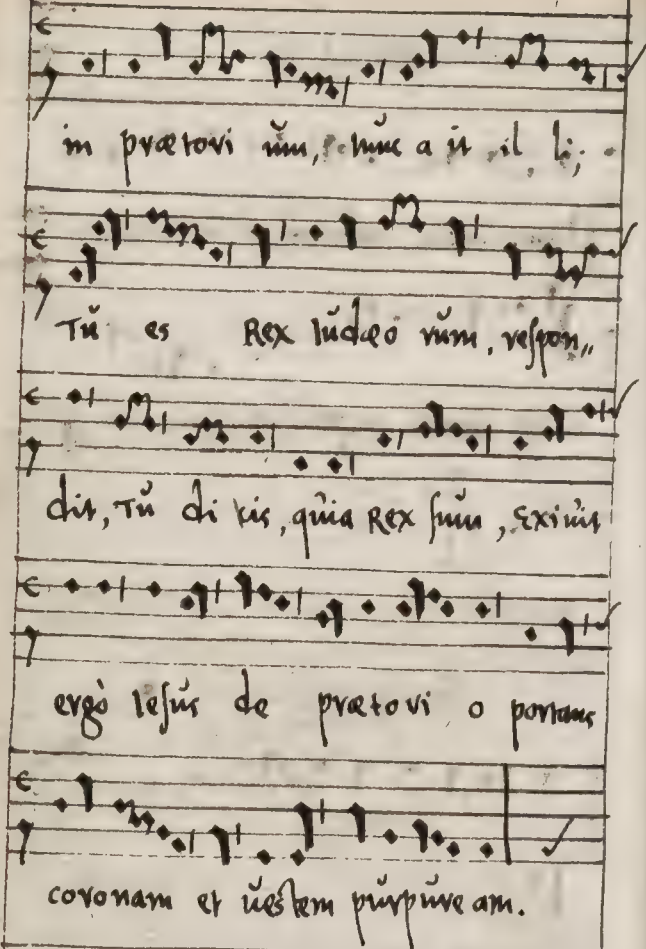 in prætori ũm, tũnc a it il li;
Tũ es Rex Iũdæo rũm, respon„
dit, Tũ di cis, qũia Rex sũm, Exiuit
ergò Iesũs de prætori o portans
coronam et ũestem pũrpũre am.